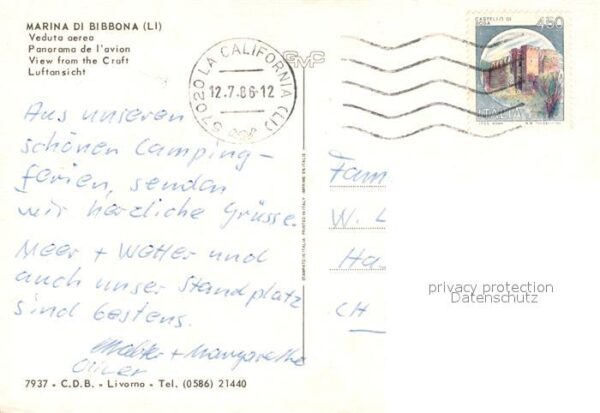 MARINA DI BIBBONA (LI)
Veduta aerea
Panorama de l'avion
View from the Craft
Luftansicht
57020 LA CALIFORNIA (LI)
12.7.86-12
CASTELLO DI
450
ITALIA
Aus unseren
schönen Camping-
ferien, senden
wir herzliche Grüsse.
Meer + Wetter und
auch unser Standplatz
sind bestens.
+ Margarethe
Oliver
STAMPATO IN ITALIA - PRINTED IN ITALY - IMPRIMÉ EN ITALIE
Fam
W. L
Ha
CH
privacy protection
Datenschutz
7937 - C.D.B. - Livorno - Tel. (0586) 21440